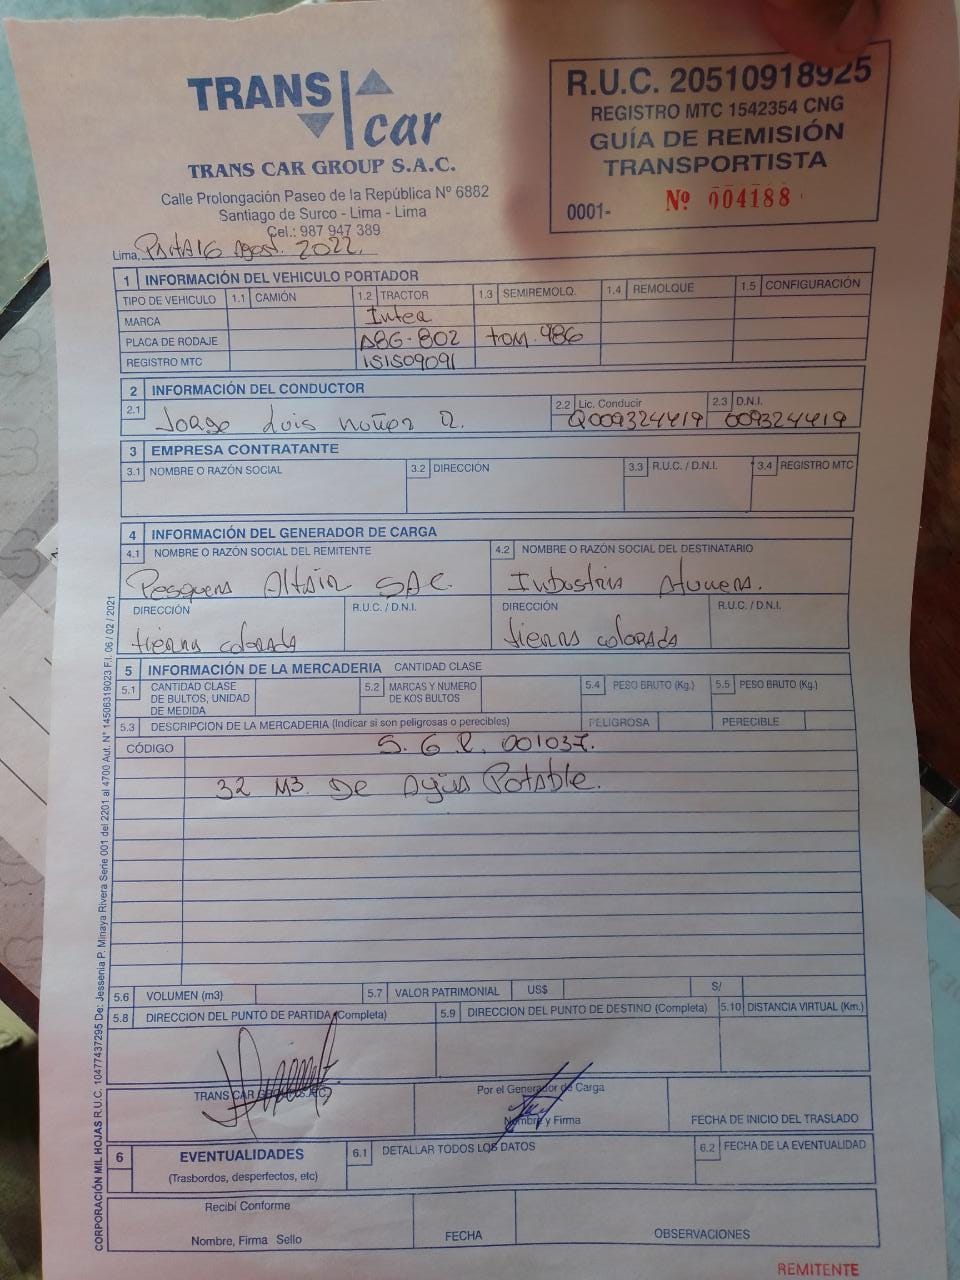 TRANS car
TRANS CAR GROUP S.A.C.
Calle Prolongación Paseo de la República Nº 6882
Santiago de Surco - Lima - Lima
Cel.: 987 947 389
R.U.C. 20510918925
REGISTRO MTC 1542354 CNG
GUÍA DE REMISIÓN
TRANSPORTISTA
0001- Nº 004188
Lima, Paita 16 Agost. 2022.
1 INFORMACIÓN DEL VEHICULO PORTADOR
TIPO DE VEHICULO 1.1 CAMIÓN 1.2 TRACTOR 1.3 SEMIREMOLQ. 1.4 REMOLQUE 1.5 CONFIGURACIÓN
MARCA Inter
PLACA DE RODAJE A8G-802 TOM-986
REGISTRO MTC 151509091
2 INFORMACIÓN DEL CONDUCTOR
2.1 Jorge Luis Nuñez Q. 2.2 Lic. Conducir Q009324419 2.3 D.N.I. 009324419
3 EMPRESA CONTRATANTE
3.1 NOMBRE O RAZÓN SOCIAL 3.2 DIRECCIÓN 3.3 R.U.C. / D.N.I. 3.4 REGISTRO MTC
4 INFORMACIÓN DEL GENERADOR DE CARGA
4.1 NOMBRE O RAZÓN SOCIAL DEL REMITENTE 4.2 NOMBRE O RAZÓN SOCIAL DEL DESTINATARIO
Pesquera Altair SAC. Industria Atunera.
DIRECCIÓN R.U.C. / D.N.I. DIRECCIÓN R.U.C. / D.N.I.
tierra colorada tierra colorada
5 INFORMACIÓN DE LA MERCADERIA CANTIDAD CLASE
5.1 CANTIDAD CLASE DE BULTOS, UNIDAD DE MEDIDA 5.2 MARCAS Y NUMERO DE KOS BULTOS 5.4 PESO BRUTO (Kg.) 5.5 PESO BRUTO (Kg.)
5.3 DESCRIPCION DE LA MERCADERIA (Indicar si son peligrosas o perecibles) PELIGROSA PERECIBLE
CÓDIGO S. G R. 001037.
32 M3. De Agua Potable.
5.6 VOLUMEN (m3) 5.7 VALOR PATRIMONIAL US$ S/
5.8 DIRECCION DEL PUNTO DE PARTIDA (Completa) 5.9 DIRECCION DEL PUNTO DE DESTINO (Completa) 5.10 DISTANCIA VIRTUAL (Km.)
TRANS CAR GROUP S.A.C. Por el Generador de Carga
Nombre y Firma FECHA DE INICIO DEL TRASLADO
6 EVENTUALIDADES 6.1 DETALLAR TODOS LOS DATOS 6.2 FECHA DE LA EVENTUALIDAD
(Trasbordos, desperfectos, etc)
Recibí Conforme
Nombre, Firma Sello FECHA OBSERVACIONES
REMITENTE
CORPORACIÓN MIL HOJAS R.U.C. 10477437295 De: Jessenia P. Minaya Rivera Serie 001 del 2201 al 4700 Aut. N° 14506319023 F.I. 06 / 02 / 2021